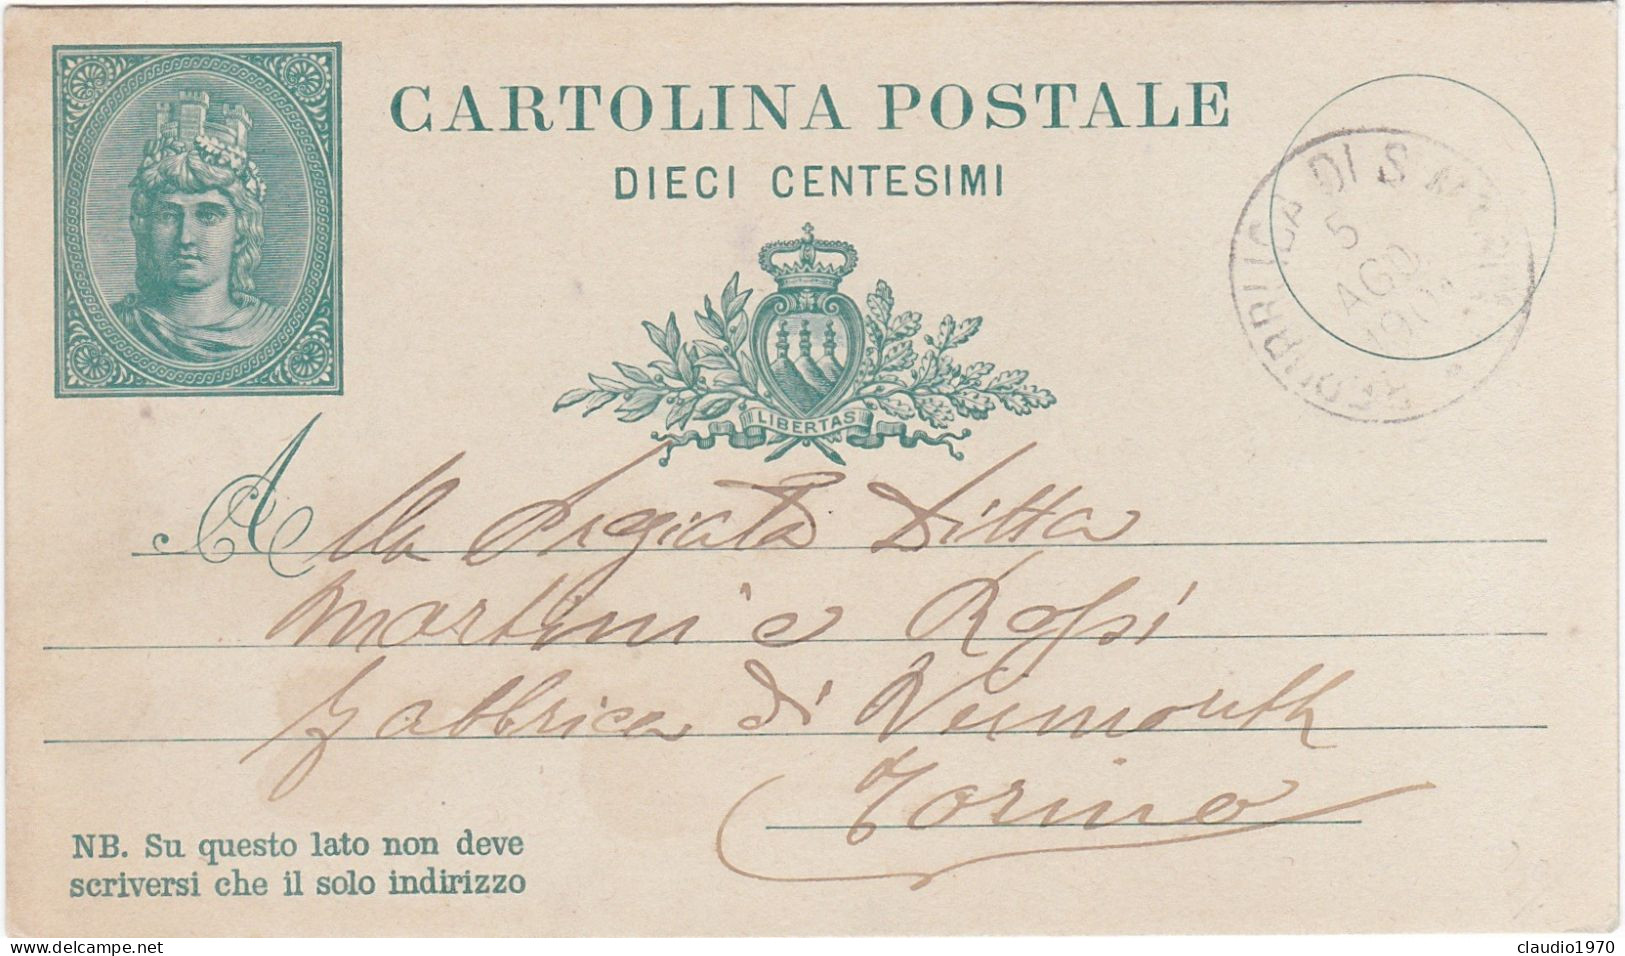 CARTOLINA POSTALE
DIECI CENTESIMI
REPUBBLICA DI S. MARINO
5
AGO
LIBERTAS
Alla Pregiata Ditta
Martini e Rossi
Fabbrica di Vermouth
Torino
NB. Su questo lato non deve
scriversi che il solo indirizzo
claudio1970